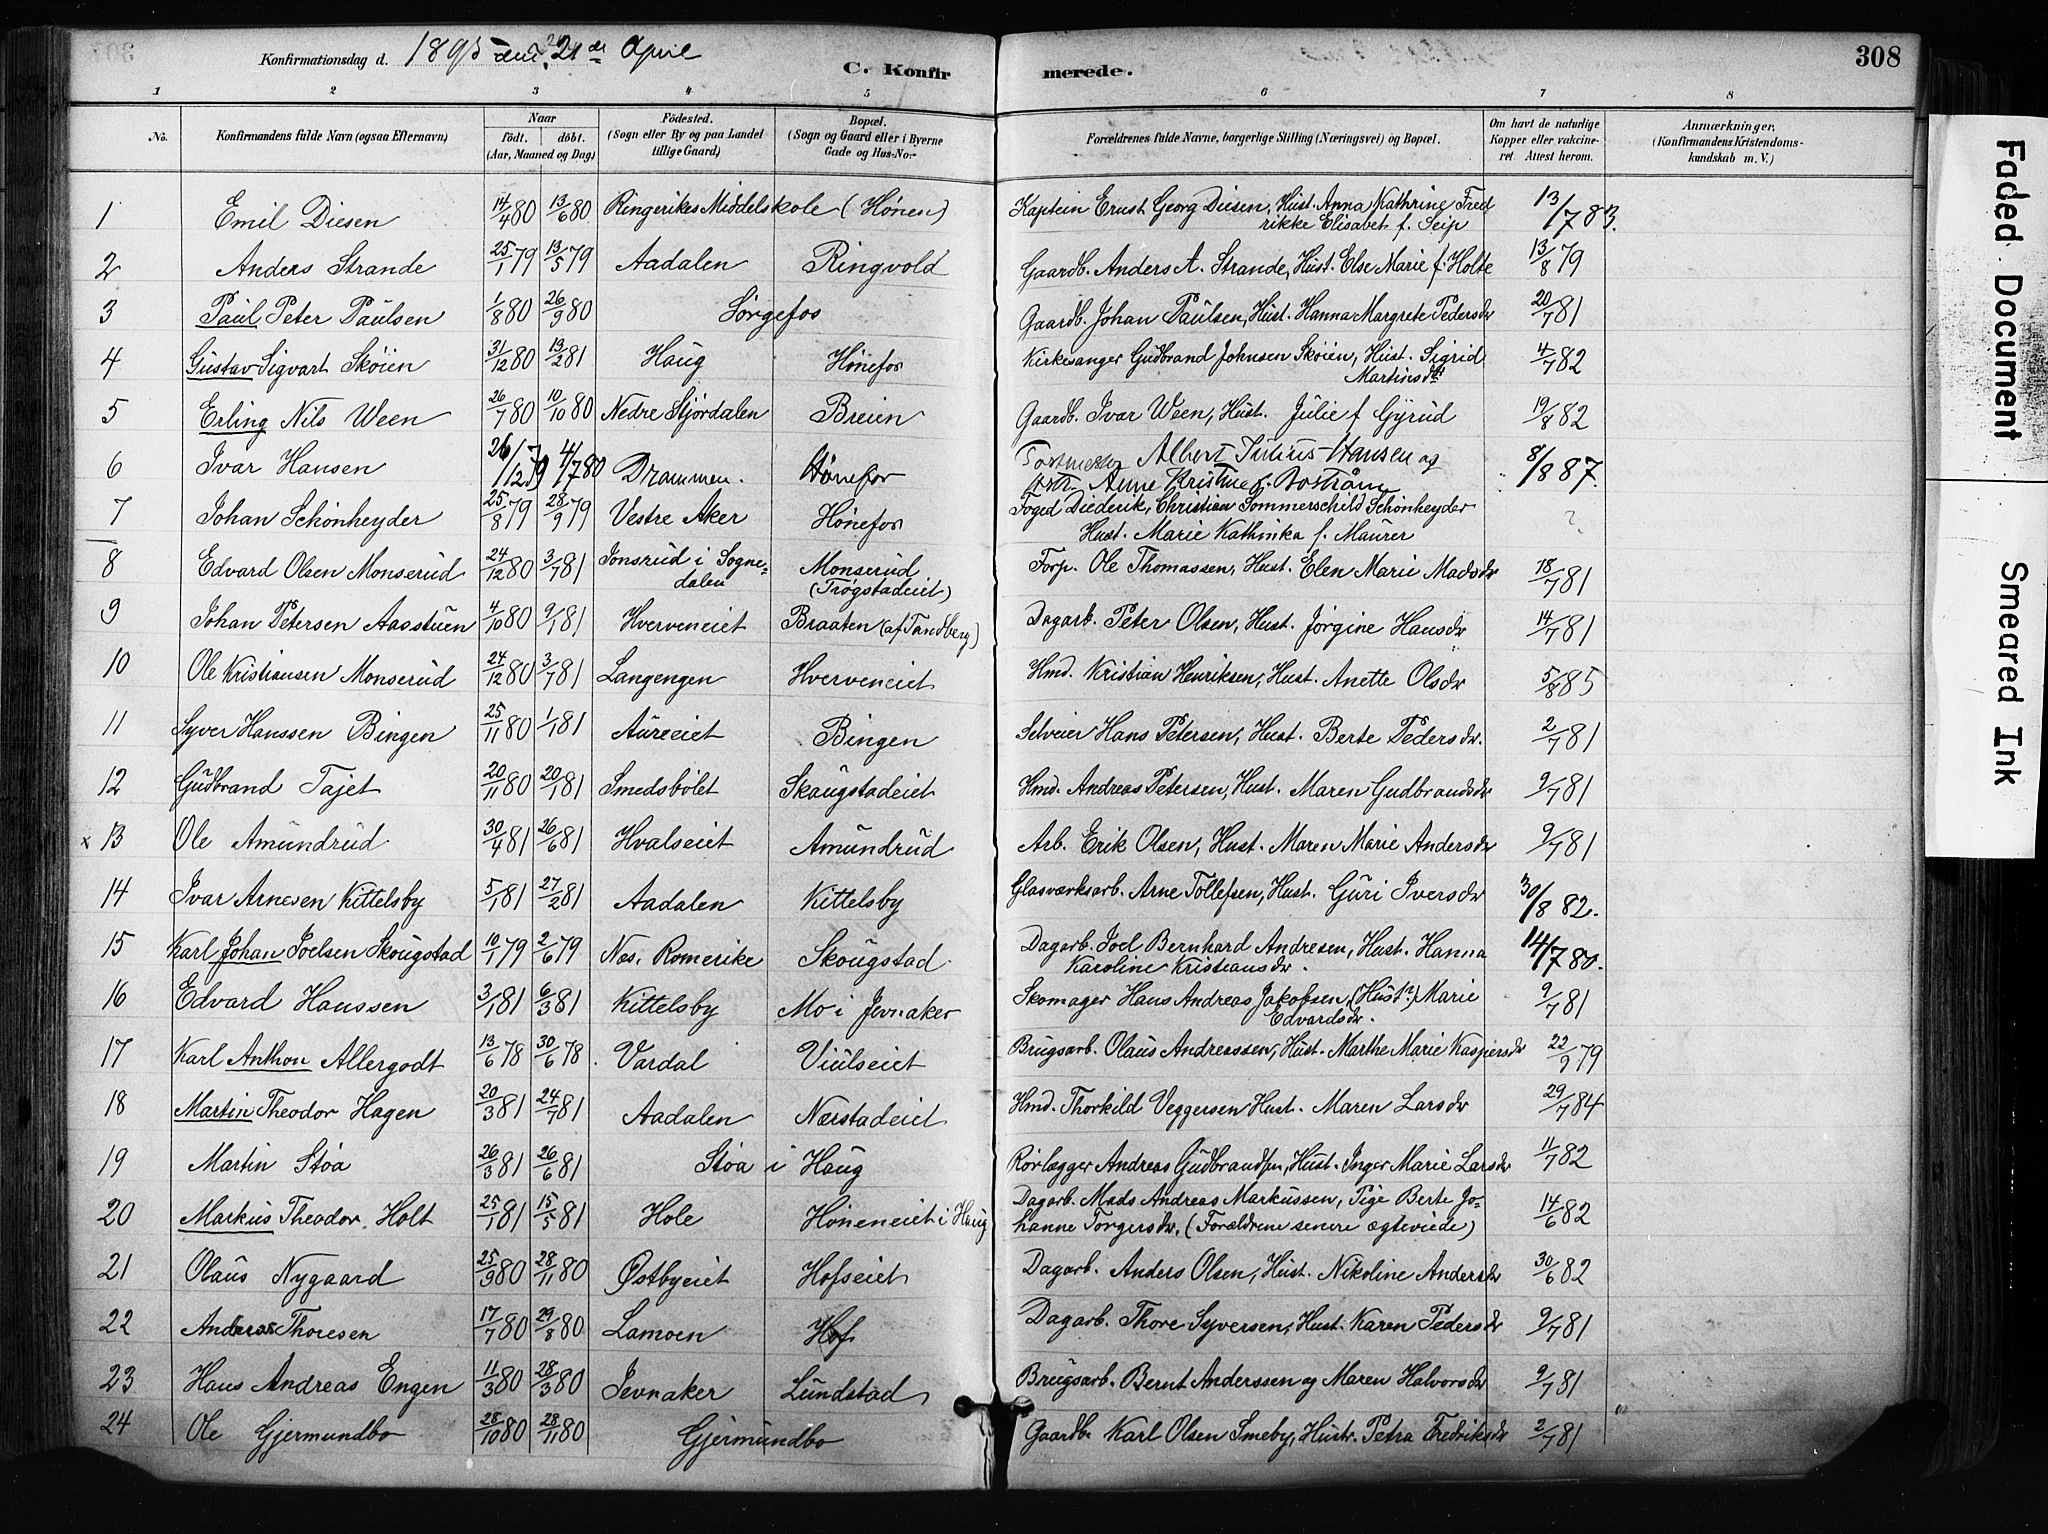 Konfirmationsdag d. 1895 den 21de April
C. Konfirmerede. 308
1 2 3 4 5 6 7 8
No. Konfirmandens fulde Navn (ogsaa Efternavn) Naar født. døbt. (Aar, Maaned og Dag) Fødested. (Sogn eller By og paa Landet tillige Gaard) Bopæl. (Sogn og Gaard eller i Byerne Gade og Hus-No. Forældrenes fulde Navne, borgerlige Stilling (Næringsvei) og Bopæl. Om havt de naturlige Kopper eller vakcineret Attest herom. Anmærkninger. (Konfirmandens Kristendomskundskab m. V.)
1 Emil Diesen 14/4 80 13/6 80 Ringerikes Middelskole (Hønen) Kaptein Ernst Georg Diesen, Hust. Anna Kathrine Fredrikke Elisabet f. Seip 13/7 83.
2 Anders Strande 25/1 79 13/5 79 Aadalen Ringvold Gaardb. Anders A. Strande, Hust. Else Marie f. Holte 13/8 79
3 Paul Peter Paulsen 1/8 80 26/9 80 Sørgefos Gaardb. Johan Paulsen, Hust. Hanna Margrete Pedersdr 20/7 81
4 Gustav Sigvart Skøien 31/12 80 13/2 81 Haug Hønefos Kirkesanger Gudbrand Johnsen Skøien, Hust. Sigrid Martinsdtr 4/7 82
5 Erling Nils Ween 26/7 80 10/10 80 Nedre Stjørdalen Breien Gaardb. Ivar Ween, Hust. Julie f. Gyrud 19/8 82
6 Ivar Hansen 26/12 79 4/7 80 Drammen. Hønefos Albert Julius Hansen og Anne Kristine f. Bostrøm 8/8 87.
7 Johan Schønheyder 25/8 79 28/9 79 Vestre Aker Hønefos Foged Diederik, Christian Sommerschild Schønheyder Hust. Marie Kathinka f. Maurer ?
8 Edvard Olsen Monserud 24/12 80 3/7 81 Jonsrud i Sognedalen Monserud (Trøgstadeiet) Torp. Ole Thomassen, Hust. Elen Marie Madsdr 18/7 81
9 Johan Petersen Aasstuen 4/10 80 9/1 81 Hverveneiet Braaten (af Tandberg) Dagarb. Peter Olsen, Hust. Jørgine Hansdr 14/7 81
10 Ole Kristiansen Monserud 24/12 80 3/7 81 Langengen Hverveneiet Hmd. Kristian Henriksen, Hust. Anette Olsdr 5/8 85
11 Syver Hanssen Bingen 25/11 80 1/1 81 Aureeiet Bingen Selveier Hans Petersen, Hust. Berte Pedersdr. 2/7 81
12 Gudbrand Tajet 20/11 80 20/1 81 Smedsbølet Skougstadeiet Hmd. Andreas Petersen, Hust. Maren Gudbrandsdr 9/7 81
x 13 Ole Amundrud 30/4 81 26/6 81 Hvalseiet Amundrud Arb. Erik Olsen, Hust. Maren Marie Andersdr 9/7 81
14 Ivar Arnesen Kittelsby 5/1 81 27/2 81 Aadalen Kittelsby Glasværksarb. Arne Tollefsen, Hust. Guri Iversdr 30/8 82.
15 Karl Johan Joelsen Skougstad 10/1 79 2/6 79 Næs, Romerike Skougstad Dagarb. Joel Bernhard Andresen, Hust. Hanna Karoline Kristiansdr. 14/7 80.
16 Edvard Hanssen 3/1 81 6/3 81 Kittelsby Mo i Jevnaker Skomager Hans Andreas Jakobsen, (Hust?) Marie Edvardsdr. 9/7 81
17 Karl Anthon Allergodt 13/6 78 30/6 78 Vardal Viulseiet Brugsarb. Olaus Andreassen, Hust. Marthe Marie Kaspersdr 22/9 79
18 Martin Theodor Hagen 20/3 81 24/7 81 Aadalen Nærstadeiet Hmd. Thorkild Veggersen Hust. Maren Larsdr 29/7 84
19 Martin Støa 26/3 81 26/6 81 Støa i Haug Rørlægger Andreas Gudbrandsen, Hust. Inger Marie Larsdr 11/7 82
20 Markus Theodor Holt 25/1 81 15/5 81 Hole Høneneiet i Haug Dagarb. Mads Andreas Markussen, Pige Berte Johanne Torgersdr. (Forældrene senere ægteviede) 14/6 82
21 Olaus Nygaard 25/9 80 28/11 80 Østbyeiet Hofseiet Dagarb. Anders Olsen, Hust. Nikoline Andersdr 30/6 82
22 Anders Thoresen 17/7 80 29/8 80 Lamoen Hof Dagarb. Thore Syversen, Hust. Karen Pedersdr 9/7 81
23 Hans Andreas Engen 11/3 80 28/3 80 Jevnaker Lundstad Brugsarb. Bernt Anderssen og Maren Halvorsdr 9/7 81
24 Ole Gjermundbo 28/10 80 28/11 80 Gjermundbo Gaardb. Karl Olsen Smeby, Hustr. Petra Fredriksdr 2/7 81
Faded Document
Smeared Ink